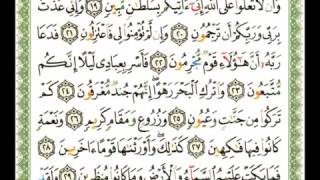 وَأَن لَّا تَعْلُوا۟ عَلَى ٱللَّهِ إِنِّىٓ ءَاتِيكُم بِسُلْطَٰنٍ مُّبِينٍ ١٩ وَإِنِّى عُذْتُ
بِرَبِّى وَرَبِّكُمْ أَن تَرْجُمُونِ ٢٠ وَإِن لَّمْ تُؤْمِنُوا۟ لِى فَٱعْتَزِلُونِ ٢١ فَدَعَا
رَبَّهُۥٓ أَنَّ هَٰٓؤُلَآءِ قَوْمٌ مُّجْرِمُونَ ٢٢ فَأَسْرِ بِعِبَادِى لَيْلًا إِنَّكُم
مُّتَّبَعُونَ ٢٣ وَٱتْرُكِ ٱلْبَحْرَ رَهْوًا إِنَّهُمْ جُندٌ مُّغْرَقُونَ ٢٤ كَمْ
تَرَكُوا۟ مِن جَنَّٰتٍ وَعُيُونٍ ٢٥ وَزُرُوعٍ وَمَقَامٍ كَرِيمٍ ٢٦ وَنَعْمَةٍ
كَانُوا۟ فِيهَا فَٰكِهِينَ ٢٧ كَذَٰلِكَ وَأَوْرَثْنَٰهَا قَوْمًا ءَاخَرِينَ ٢٨
فَمَا بَكَتْ عَلَيْهِمُ ٱلسَّمَآءُ وَٱلْأَرْضُ وَمَا كَانُوا۟ مُنظَرِينَ ٢٩